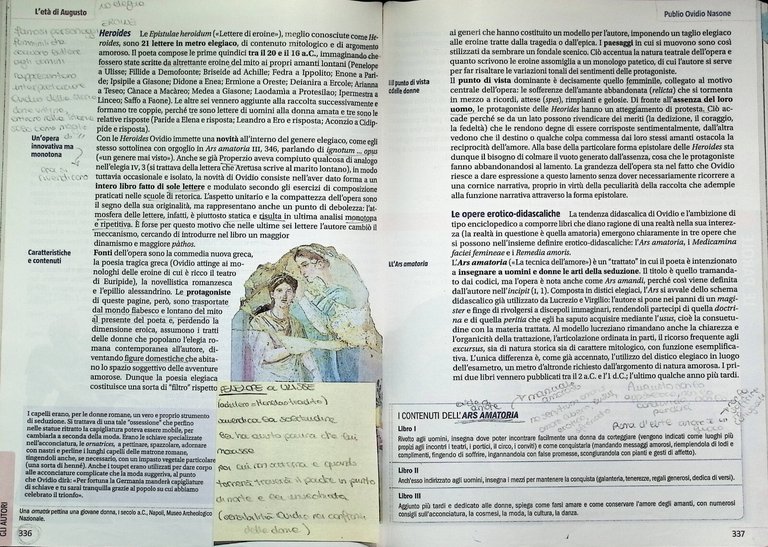 L'età di Augusto
EROINE
Un'opera
innovativa ma
monotona
Caratteristiche
e contenuti
Heroides Le Epistulae heroidum («Lettere di eroine»), meglio conosciute come He-
roides, sono 21 lettere in metro elegiaco, di contenuto mitologico e di argomento
amoroso. Il poeta compose le prime quindici tra il 20 e il 16 a.C., immaginando che
fossero state scritte da altrettante eroine del mito ai propri amanti lontani (Penelope
a Ulisse; Fillide a Demofoonte; Briseide ad Achille; Fedra a Ippolito; Enone a Pari-
de; Ipsipile a Giasone; Didone a Enea; Ermione a Oreste; Deianira a Ercole; Arianna
a Teseo; Cànace a Macàreo; Medea a Giasone; Laodamia a Protesilao; Ipermestra a
Linceo; Saffo a Faone). Le altre sei vennero aggiunte alla raccolta successivamente e
formano tre coppie, perché tre sono lettere di uomini alla donna amata e tre sono le
relative risposte (Paride a Elena e risposta; Leandro a Ero e risposta; Aconzio a Cidip-
pide e risposta).
Con le Heroides Ovidio immette una novità all'interno del genere elegiaco, come egli
stesso sottolinea con orgoglio in Ars amatoria III, 346, parlando di ignotum ... opus
(«un genere mai visto»). Anche se già Properzio aveva compiuto qualcosa di analogo
nell'elegia IV, 3 (si trattava della lettera che Aretusa scrive al marito lontano), in modo
tuttavia occasionale e isolato, la novità di Ovidio consiste nell'aver dato forma a un
intero libro fatto di sole lettere e modulato secondo gli esercizi di composizione
praticati nelle scuole di retorica. L'aspetto unitario e la compattezza dell'opera sono
il segno della sua originalità, ma rappresentano anche un punto di debolezza: l'at-
mosfera delle lettere, infatti, è piuttosto statica e risulta in ultima analisi monotona
e ripetitiva. È forse per questo motivo che nelle ultime sei lettere l'autore cambiò il
meccanismo, cercando di introdurre nel libro un maggior
dinamismo e maggiore pàthos.
Fonti dell'opera sono la commedia nuova greca,
la poesia tragica greca (Ovidio attinge ai mo-
nologhi delle eroine di cui è ricco il teatro
di Euripide), la novellistica romanzesca
e l'epillio alessandrino. Le protagoniste
di queste pagine, però, sono trasportate
dal mondo fiabesco e lontano del mito
al presente del poeta e, perdendo la
dimensione eroica, assumono i tratti
delle donne che popolano l'elegia ro-
mana contemporanea all'autore, di-
ventando figure domestiche che abita-
no lo spazio soggettivo delle avventure
amorose. Dunque la poesia elegiaca
costituisce una sorta di "filtro" rispetto
I capelli erano, per le donne romane, un vero e proprio strumento
di seduzione. Si trattava di una tale "ossessione" che perfino
nelle statue ritratto la capigliatura poteva essere mobile, per
cambiarla a seconda della moda. Erano le schiave specializzate
nell'acconciatura, le ornatrices, a pettinare, spazzolare, adornare
con nastri e perline i lunghi capelli delle matrone romane,
tingendoli anche, se necessario, con un impasto vegetale particolare
(una sorta di henné). Anche i toupet erano utilizzati per dare corpo
alle acconciature complicate che la moda suggeriva, al punto
che Ovidio dirà: «Per fortuna la Germania manderà capigliature
di schiave e tu sarai tranquilla grazie al popolo su cui abbiamo
celebrato il trionfo».
Una ornatrix pettina una giovane donna, I secolo a.C., Napoli, Museo Archeologico
Nazionale.
GLI AUTORI
336
PENELOPE a ULISSE
per lui non ancora e quando
tornerà troverà il padre in punto
di morte e lei invecchiata
(sensibilità Ovidio nei confronti
delle donne)
Publio Ovidio Nasone
Il punto di vista
delle donne
L'Ars amatoria
ai generi che hanno costituito un modello per l'autore, imponendo un taglio elegiaco
alle eroine tratte dalla tragedia o dall'epica. I paesaggi in cui si muovono sono così
stilizzati da sembrare un fondale scenico. Ciò accentua la natura teatrale dell'opera e
quanto scrivono le eroine assomiglia a un monologo patetico, di cui l'autore si serve
per far risaltare le variazioni tonali dei sentimenti delle protagoniste.
Il punto di vista dominante è decisamente quello femminile, collegato al motivo
centrale dell'opera: le sofferenze dell'amante abbandonata (relicta) che si tormenta
in mezzo a ricordi, attese (spes), rimpianti e gelosie. Di fronte all'assenza del loro
uomo, le protagoniste delle Heroides hanno un atteggiamento di protesta. Ciò ac-
cade perché se da un lato possono rivendicare dei meriti (la dedizione, il coraggio,
la fedeltà) che le rendono degne di essere corrisposte sentimentalmente, dall'altra
vedono che il destino o qualche colpa commessa dai loro stessi amanti ostacola la
reciprocità dell'amore. Alla base della particolare forma epistolare delle Heroides sta
dunque il bisogno di colmare il vuoto generato dall'assenza, cosa che le protagoniste
fanno abbandonandosi al lamento. La grandezza dell'opera sta nel fatto che Ovidio
riesce a dare espressione a questo lamento senza dover necessariamente ricorrere a
una cornice narrativa, proprio in virtù della peculiarità della raccolta che adempie
alla funzione narrativa attraverso la forma epistolare.
Le opere erotico-didascaliche La tendenza didascalica di Ovidio e l'ambizione di
tipo enciclopedico a comporre libri che diano ragione di una realtà nella sua interez-
za (la realtà in questione è quella amatoria) emergono chiaramente in tre opere che
si possono nell'insieme definire erotico-didascaliche: l'Ars amatoria, i Medicamina
faciei femineae e i Remedia amoris.
L'Ars amatoria («La tecnica dell'amore») è un "trattato" in cui il poeta è intenzionato
a insegnare a uomini e donne le arti della seduzione. Il titolo è quello tramanda-
to dai codici, ma l'opera è nota anche come Ars amandi, perché così viene definita
dall'autore nell'incipit (I, 1). Composta in distici elegiaci, l'Ars si avvale dello schema
didascalico già utilizzato da Lucrezio e Virgilio: l'autore si pone nei panni di un magi-
ster e finge di rivolgersi a discepoli immaginari, rendendoli partecipi di quella doctri-
na e di quella peritia che egli ha saputo acquisire mediante l'usus, cioè la consuetu-
dine con la materia trattata. Al modello lucreziano rimandano anche la chiarezza e
l'organicità della trattazione, l'articolazione ordinata in parti, il ricorso frequente agli
excursus, sia di natura storica sia di carattere mitologico, con funzione esemplifica-
tiva. L'unica differenza è, come già accennato, l'utilizzo del distico elegiaco in luogo
dell'esametro, un metro d'altronde richiesto dall'argomento di natura amorosa. I pri-
mi due libri vennero pubblicati tra il 2 a.C. e l'1 d.C.; l'ultimo qualche anno più tardi.
I CONTENUTI DELL'ARS AMATORIA
Libro I
Rivolto agli uomini, insegna dove poter incontrare facilmente una donna da corteggiare (vengono indicati come luoghi più
propizi agli incontri i teatri, i portici, il circo, i conviti) e come conquistarla (mandando messaggi amorosi, riempiendola di lodi e
complimenti, fingendo di soffrire, ingannandola con false promesse, scongiurandola con pianti e gesti d'affetto).
Libro II
Anch'esso indirizzato agli uomini, insegna i mezzi per mantenere la conquista (galanteria, tenerezze, regali generosi, dedica di versi).
Libro III
Aggiunto più tardi e dedicato alle donne, spiega come farsi amare e come conservare l'amore degli amanti, con numerosi
consigli sull'acconciatura, la cosmesi, la moda, la cultura, la danza.
337